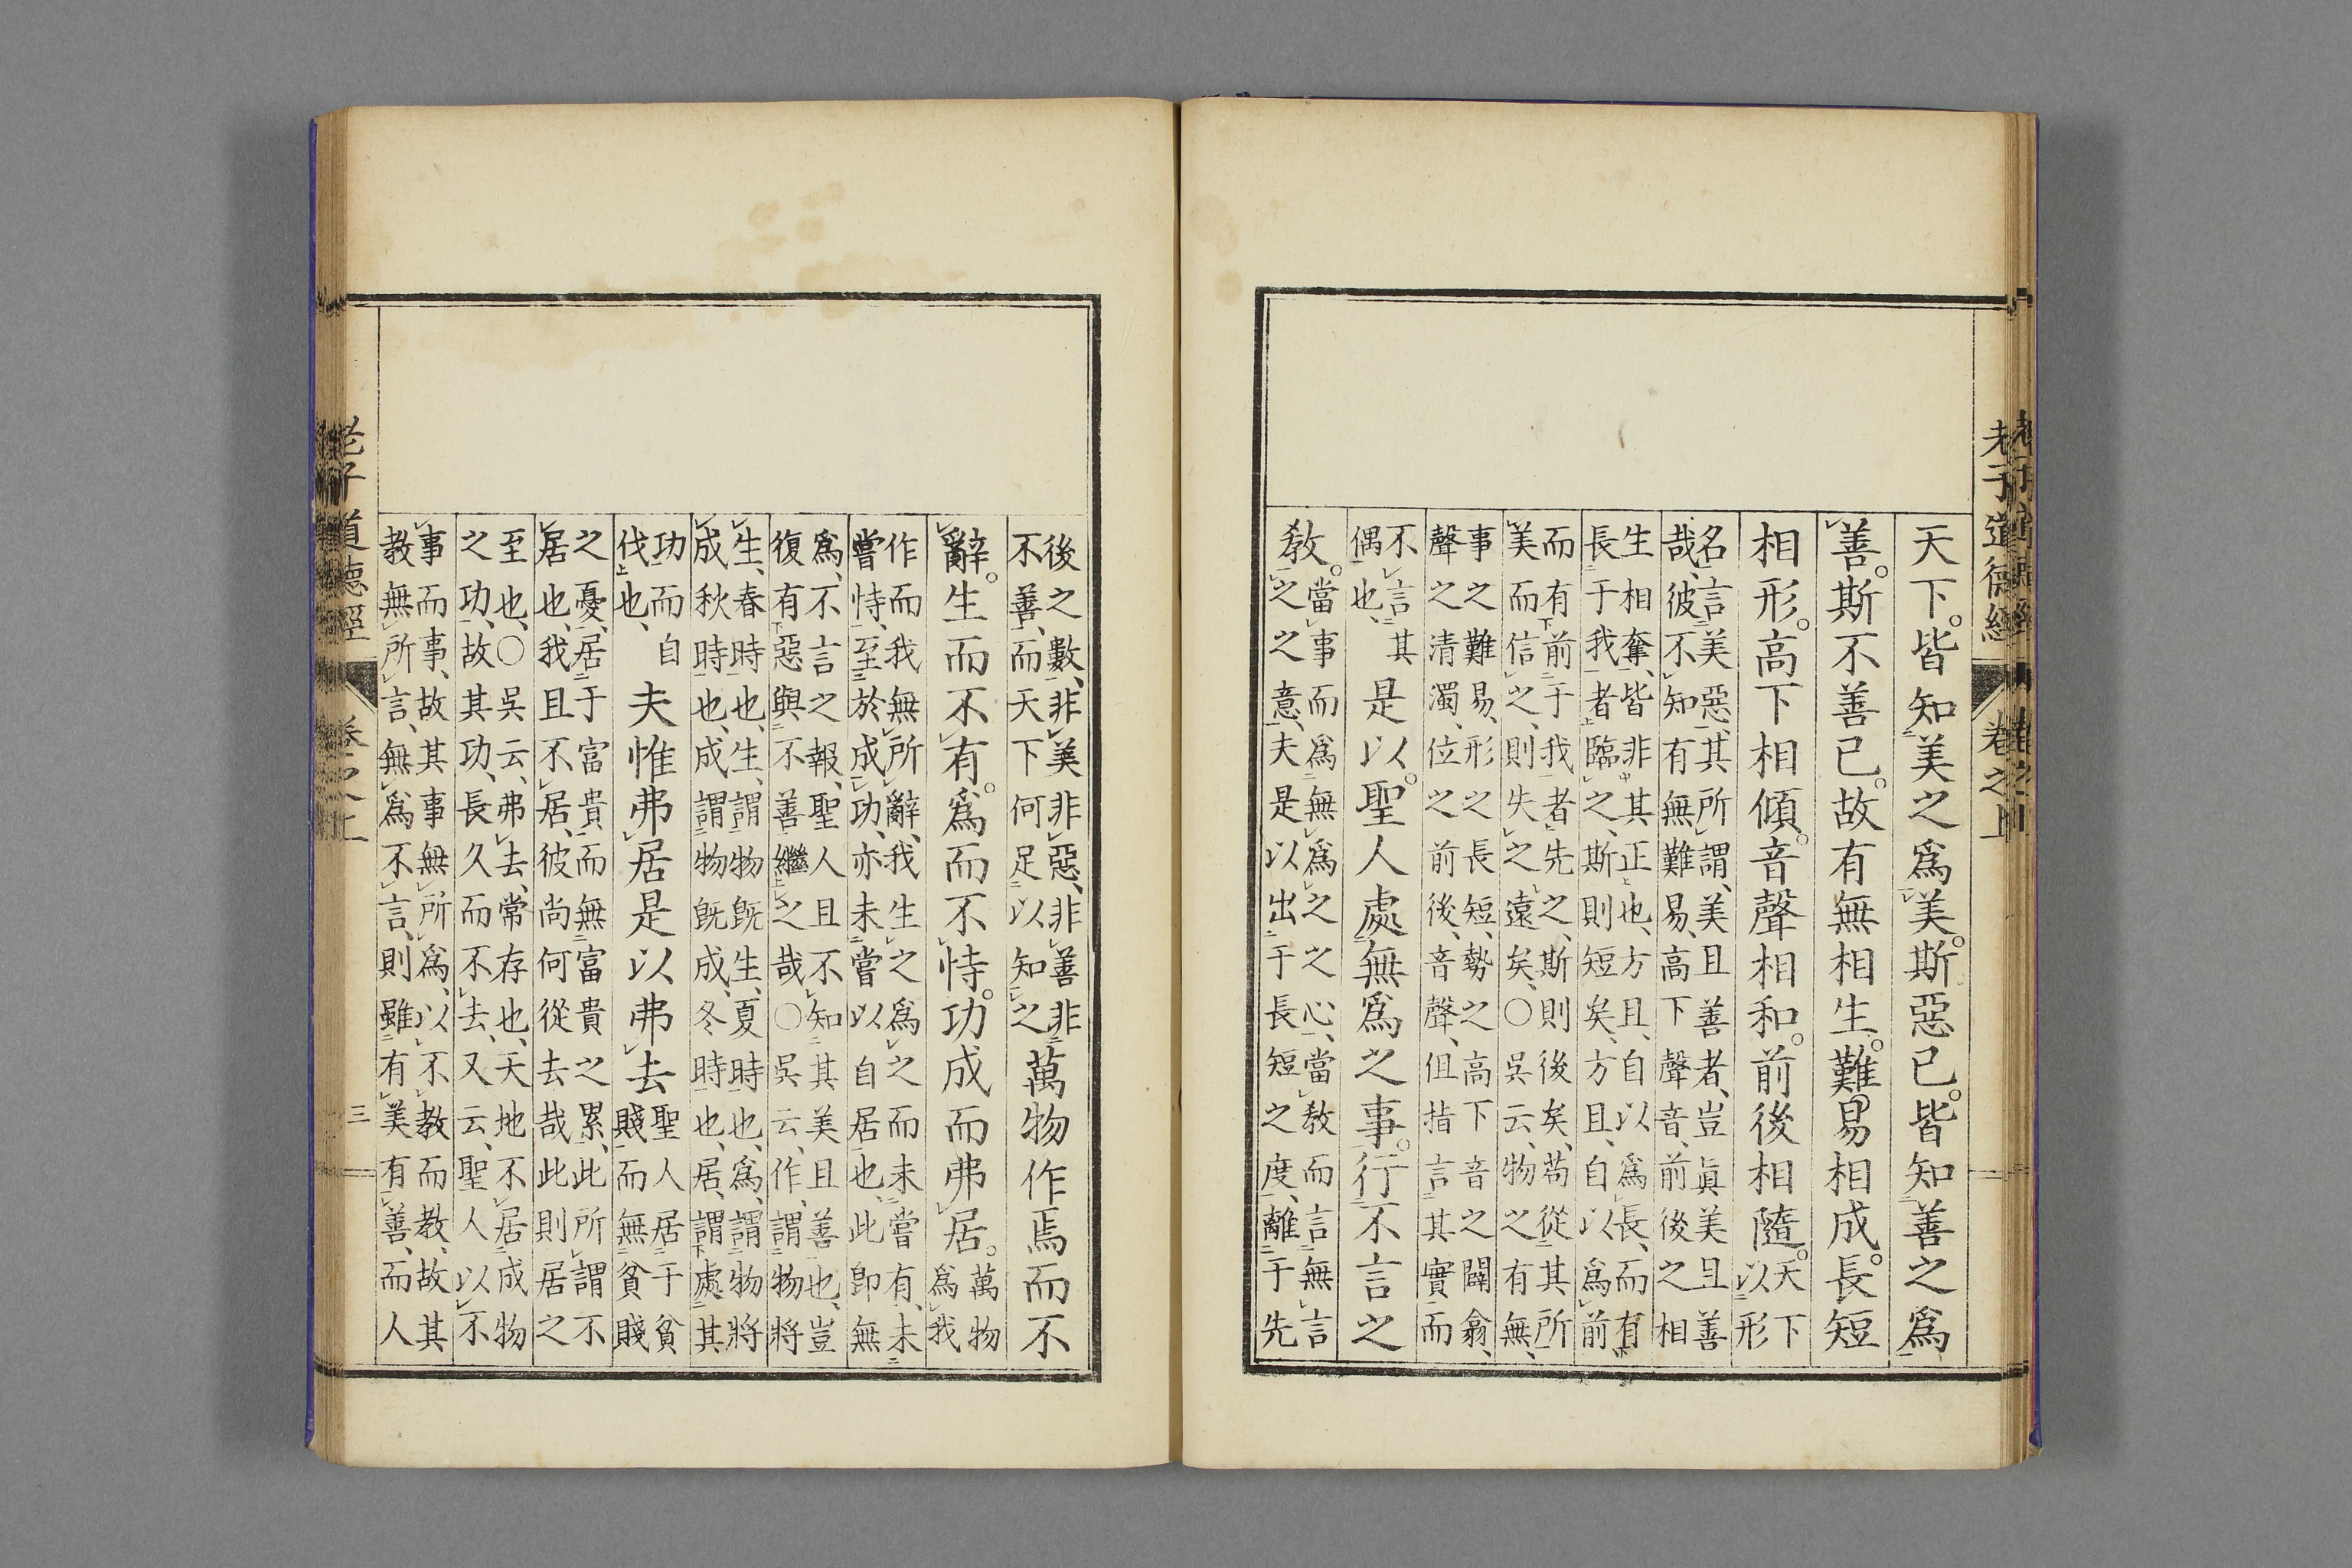 老子道德經　卷之上
天下。皆知美之爲美。斯惡已。皆知善之爲
善。斯不善已。故有無相生。難易相成。長短
相形。高下相傾。音聲相和。前後相隨。
天下
以形
名言美惡、其所謂美且善者、豈眞美且善
哉、彼不知有無難易、高下聲音、前後之相
生相奪、皆非其正也、方且、自以爲長、而有
長于我者臨之、斯則短矣、方且、自以爲前
而有前于我者先之、斯則後矣、苟從其所
美而信之、則失之遠矣、〇吳云、物之有無、
事之難易、形之長短、勢之高下音之闢翕、
聲之清濁、位之前後、音聲、但指言其實而
不言其
偶也、
是以。聖人處無爲之事。行不言之
敎。
當事而爲無爲之之心、當敎而言無言
之之意、夫是以出于長短之度、離于先
後之數、非美非惡、非善非
不善、而天下何足以知之
萬物作焉而不
辭。生而不有。爲而不恃。功成而弗居。
萬物
爲我
作而我無所辭、我生之爲之而未嘗有、未
嘗恃、至於成功、亦未嘗以自居也、此卽無
爲、不言之報、聖人且不知其美且善也、豈
復有惡與不善繼之哉〇吳云、作、謂物將
生、春時也、生、謂物旣生、夏時也、爲、謂物將
成秋時也、成謂物旣成、冬時也、居、謂處其
功而自
伐也、
夫惟弗居是以弗去
聖人居于貧
賤而無貧賤
之憂、居于富貴而無富貴之累、此所謂不
居也、我且不居、彼尚何從去哉此則居之
至也、〇吳云、弗去、常存也、天地不居成物
之功、故其功、長久而不去、又云、聖人以不
事而事、故其事無所爲、以不敎而敎、故其
敎無所言、無爲不言、則雖有美有善、而人
老子道德經　卷之上　三